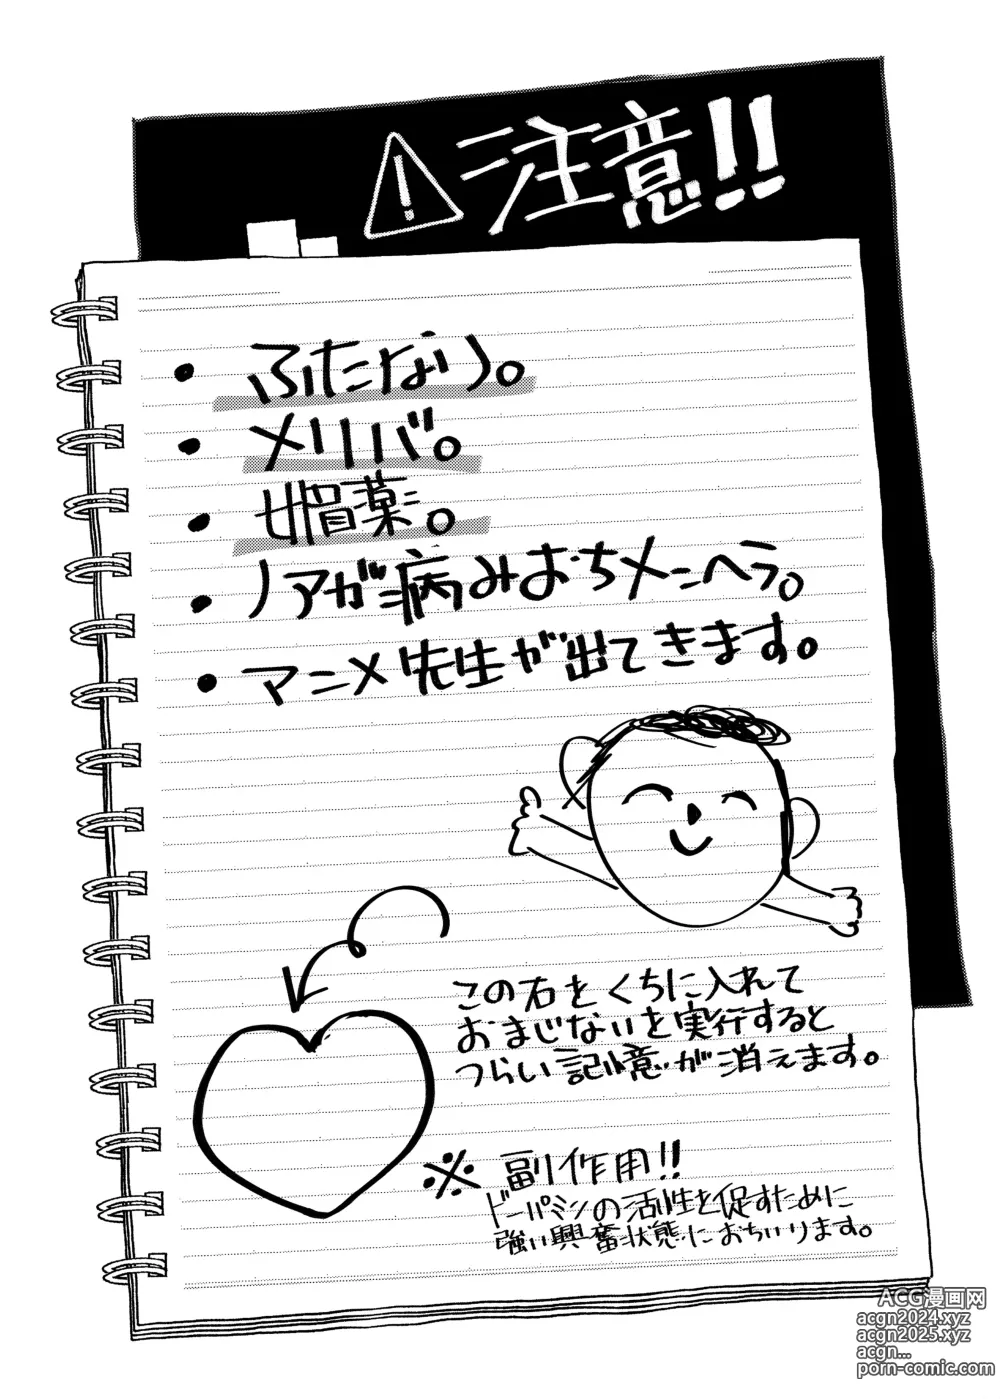 注意!!
・ふたなり。
・メリバ。
・媚薬。
・ノアが病みおちメンヘラ。
・マニメ先生が出てきます。
この石をくちに入れて
おまじないを実行すると
つらい記憶が消えます。
※副作用!!
ドーパミンの活性を促すために
強い興奮状態におちいります。
ACG漫画网
acgn2024.xyz
acgn2025.xyz
acgn...
porn-comic.com